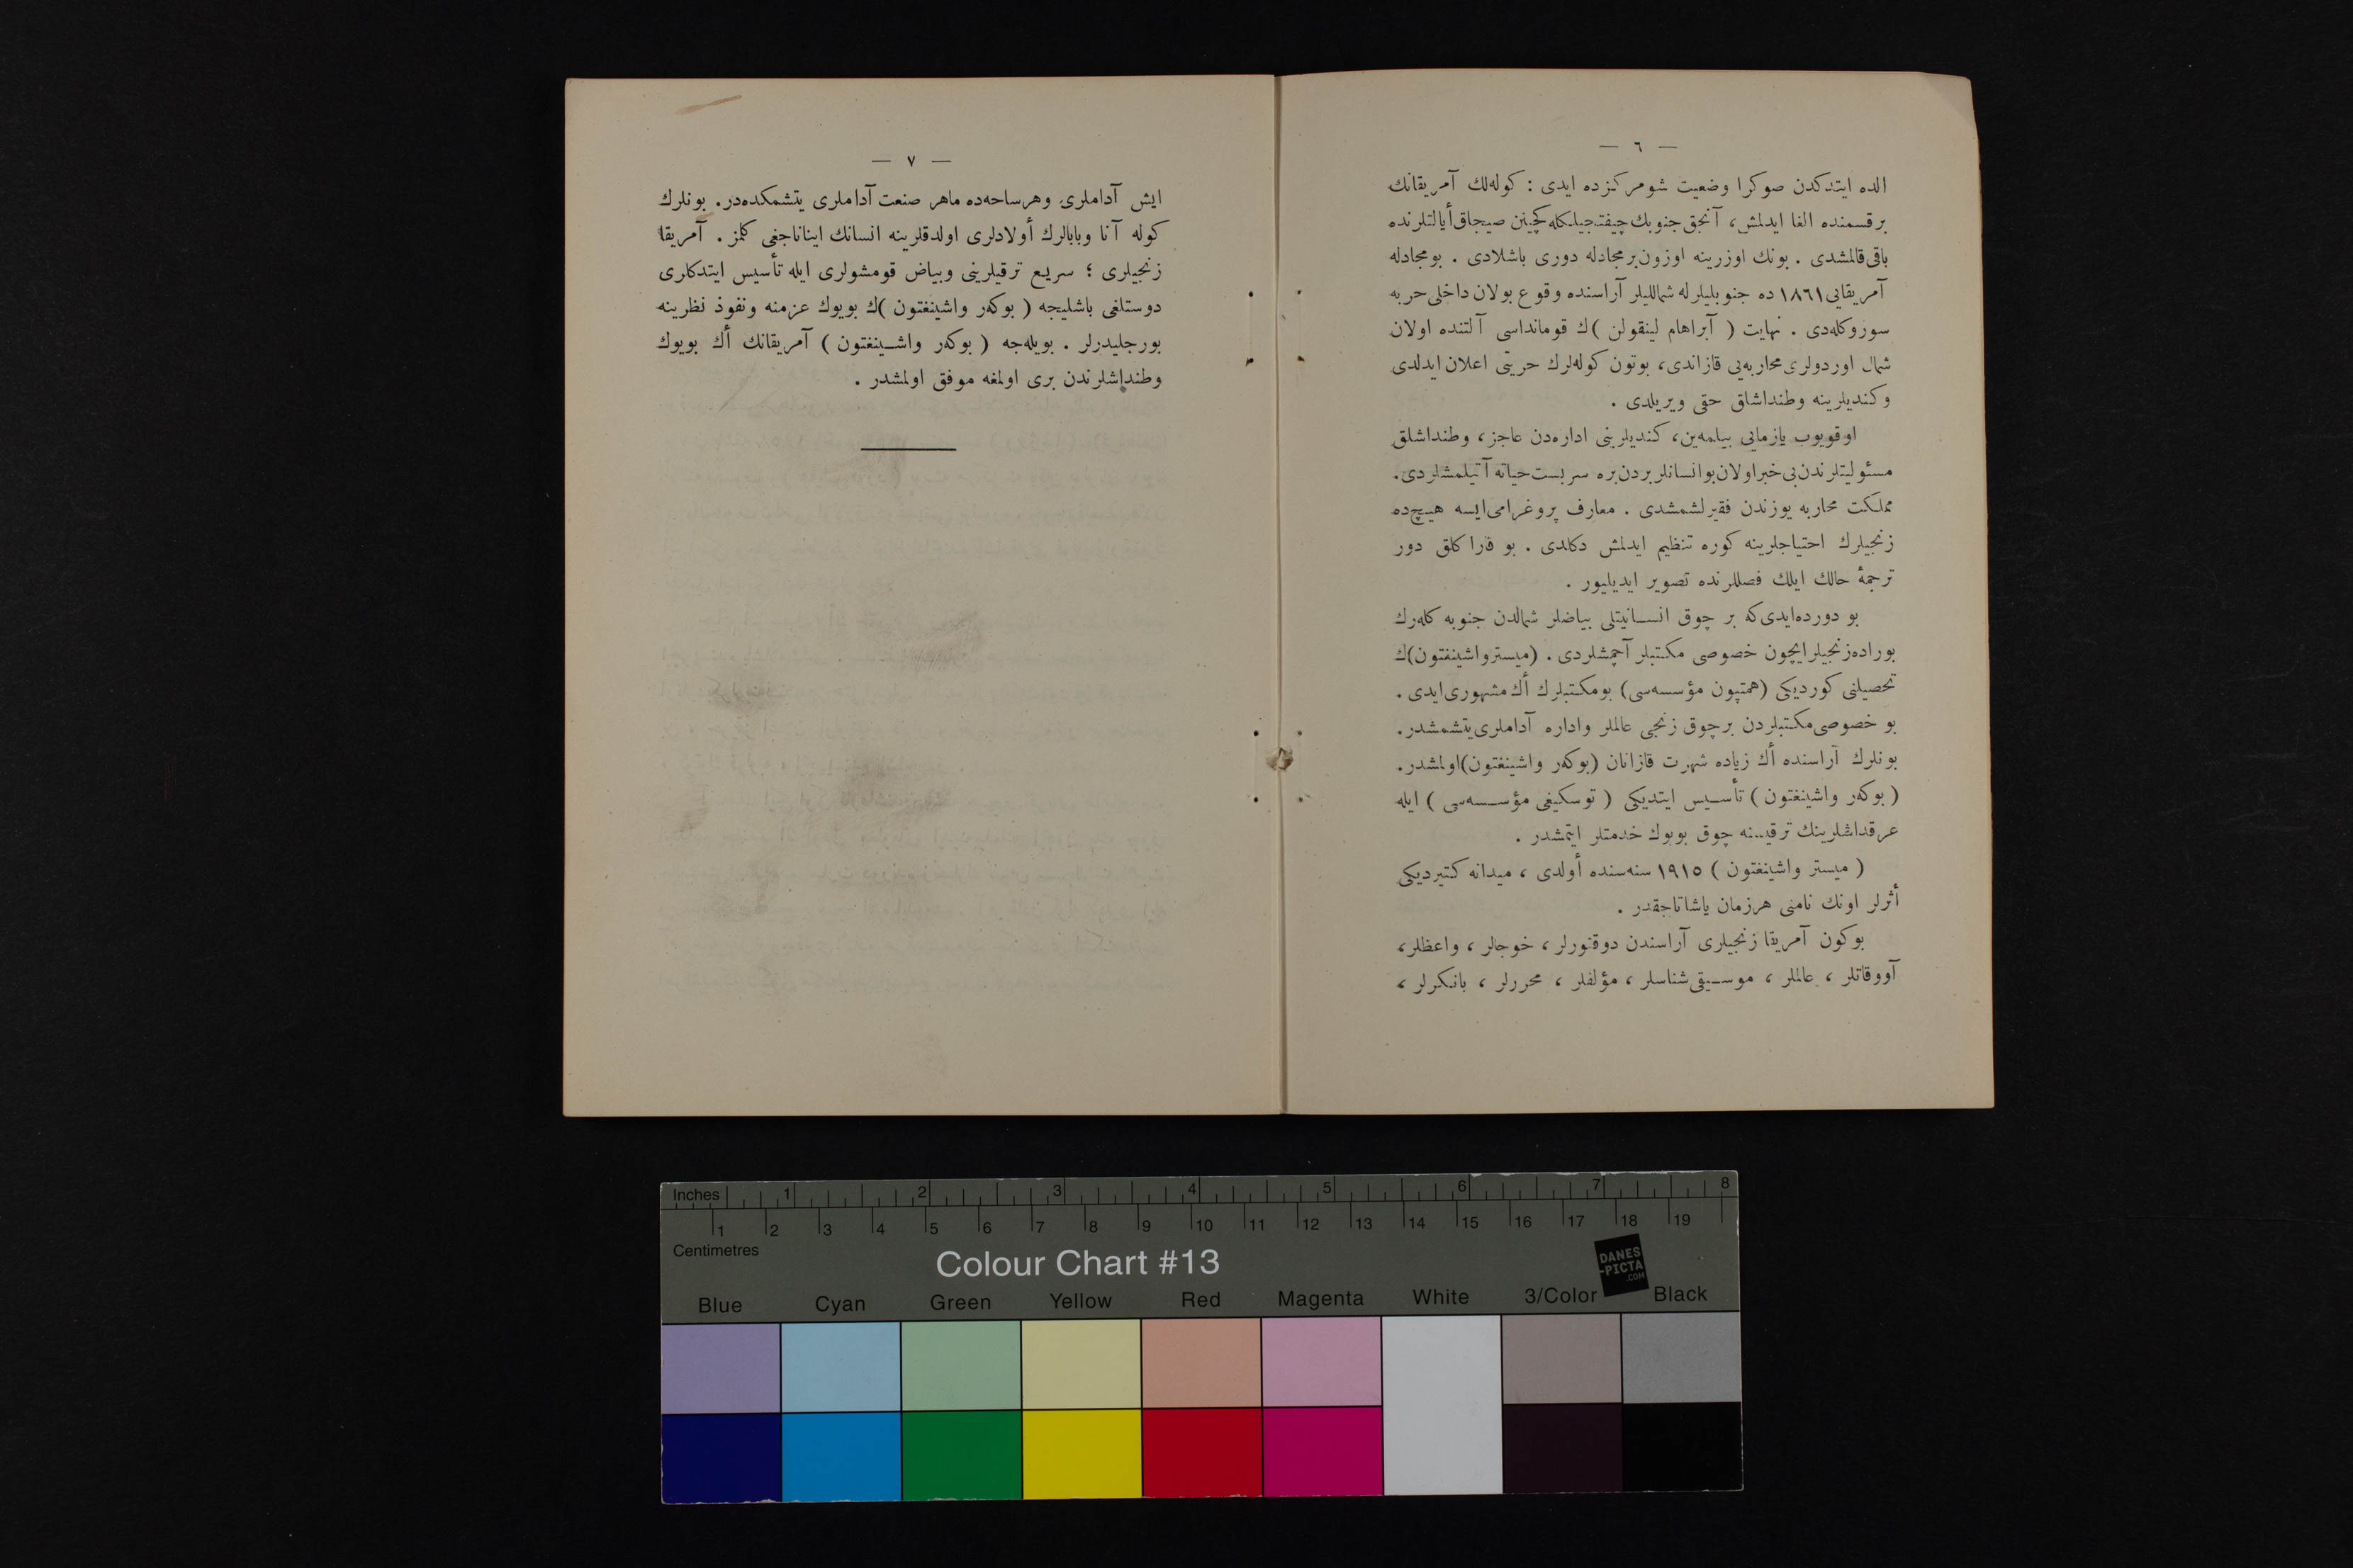 — ٦ —
الده ایتدكدن صوكرا وضعیت شومركزده ایدی : كوله‌لك آمریقانك
برقسمنده الغا ایدلمش، آنجق جنوبك چیفتجیلكله كچینن صیجاق أیالتلرنده
باقی قالمشدی . بونك اوزرینه اوزون برمجادله دوری باشلادی . بومجادله
آمریقایی ١٨٦١ ده جنوبلیلرله شماللیلر آراسنده وقوع بولان داخلی حربه
سوروكله‌دی . نهایت ( آبراهام لینقولن )ك قومانداسی آلتنده اولان
شمال اوردولری محاربه‌یی قازاندی، بوتون كوله‌لرك حریتی اعلان ایدلدی
وكندیلرینه وطنداشلق حقی ویریلدی .
اوقویوب یازمایی بیلمه‌ین، كندیلرینی اداره‌دن عاجز، وطنداشلق
مسئولیتلرندن بی خبر اولان بو انسانلر بردن بره سربست حیاته آتیلمشلردی.
مملكت محاربه یوزندن فقیرلشمشدی . معارف پروغرامی ایسه هیچ ده
زنجیلرك احتیاجلرینه كوره تنظیم ایدلمش دكلدی . بو قاراكلق دور
ترجمهٔ حالك ایلك فصللرنده تصویر ایدیلیور .
بو دورده ایدی كه بر چوق انسانیتلی بیاضلر شمالدن جنوبه كله‌رك
بوراده زنجیلر ایچون خصوصی مكتبلر آچمشلردی . (میستر واشینغتون)ك
تحصیلنی كوردیكی (همتپون مؤسسه‌سی) بومكتبلرك أك مشهوری ایدی .
بو خصوصی مكتبلردن برچوق زنجی عالملر واداره آداملری یتشمشدر.
بونلرك آراسنده أك زیاده شهرت قازانان (بوكەر واشینغتون)اولمشدر.
( بوكەر واشینغتون ) تأسیس ایتدیكی ( توسكیغی مؤسسه‌سی ) ایله
عرقداشلرینك ترقیسنه چوق بویوك خدمتلر ایتمشدر .
( میستر واشینغتون ) ١٩١٥ سنه‌سنده أولدی ، میدانه كتیردیكی
أثرلر اونك نامنی هرزمان یاشاتاجقدر .
بوكون آمریقا زنجیلری آراسندن دوقتورلر ، خوجالر ، واعظلر،
آووقاتلر ، عالملر ، موسیقی شناسلر ، مؤلفلر ، محررلر ، بانكرلر ،
— ٧ —
ایش آداملری وهرساحه‌ده ماهر صنعت آداملری یتشمكده‌در. بونلرك
كوله آنا وبابالرك أولادلری اولدقلرینه انسانك ایناناجغی كلمز . آمریقا
زنجیلری ؛ سریع ترقیلرینی وبیاض قومشولری ایله تأسیس ایتدكلری
دوستلغی باشلیجه ( بوكەر واشینغتون )ك بویوك عزمنه ونفوذ نظرینه
بورجلیدرلر . بویله‌جه ( بوكەر واشینغتون ) آمریقانك أك بویوك
وطنداشلرندن بری اولمغه موفق اولمشدر .
Inches 1 2 3 4 5 6 7 8
1 2 3 4 5 6 7 8 9 10 11 12 13 14 15 16 17 18 19
Centimetres
Colour Chart #13
DANES
-PICTA
.COM
Blue Cyan Green Yellow Red Magenta White 3/Color Black